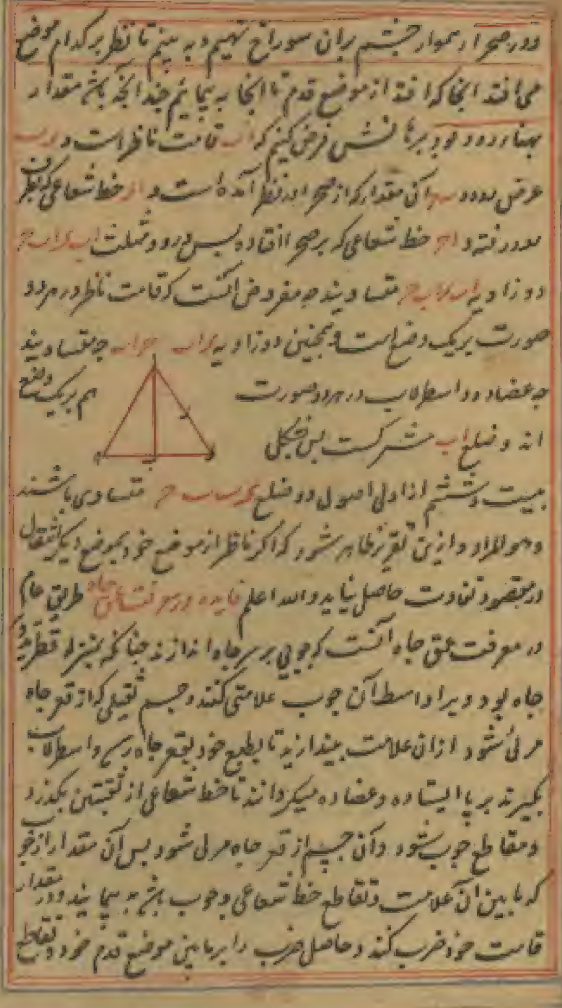 و در صحرا هموار چشم بران سوراخ نهیم و به بینم تا نظر بر کدام موضع
می افتد انجا که افتد از موضع قدم تا انجا به پیمائیم چندانکه باشد مقدار
بهناء رود بود برهانش فرض کنیم که اب قامت ناظر است و
عرض رود و آن مقدار که از صحرا در نظر آمده است و خط شعاعی که بطرف
رود رفته و خط شعاعی که بر صحرا افتاده پس در دو مثلث
دو زاویه متساویند چه مفروض آنست که قامت ناظر در هر دو
صورت بر یک وضع است و همچنین دو زاویه متساویند
چه عضاده و اسطرلاب در هر دو صورت هم بر یک وضع
اند و ضلع اب مشترکست پس بشکل
بیست و ششم از اولی اصول دو ضلع متساوی باشند
و هو المراد و ازین تقریر ظاهر شود که اگر ناظر از موضع خود بموضع دیگر انتقال
در مقصود تفاوت حاصل نیاید والله اعلم فایده در معرفت عمق چاه طریق عام
در معرفت عمق چاه آنست که چوبی بر سر چاه اندازند چنانکه بمنزله قطر
چاه بود و بر اواسط آن چوب علامتی کنند و جسم ثقیلی که از قعر چاه
مرئی شود ازان علامت بیندازند تا بطبع خود بقعر چاه رسد و اسطرلاب
بگیرند بر پا ایستاده و عضاده میگردانند تا خط شعاعی از ثقبتین بگذرد
و مقاطع چوب شود و آن جسم از قعر چاه مرئی شود پس آن مقدار از چوب
که ما بین آن علامت و تقاطع خط شعاعی و چوب باشد به پیمایند و در مقدار
قامت خود ضرب کنند و حاصل ضرب را بر ما بین موضع قدم خود و تقاطع